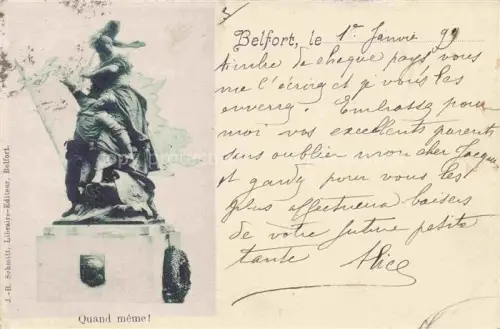 Belfort, le 1er Janvier 99
timbre de chaque pays vous
me l'écrirez et je vous les
enverrai. Embrassez pour
moi vos excellents parents
sans oublier mon cher Jacques
et gardez pour vous les
plus affectueux baisers
de votre future petite
tante Alice
J.-B. Schmitt, Libraire-Editeur, Belfort.
Quand même!